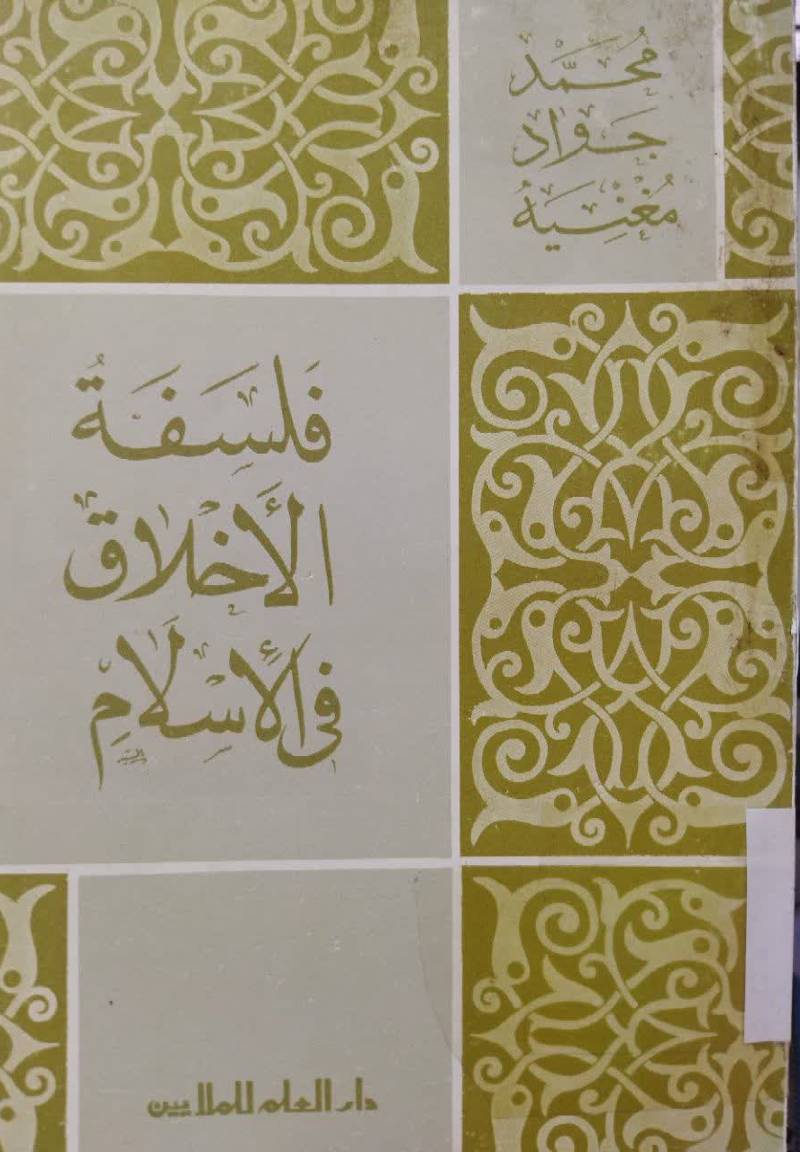 محمد
جواد
مغنيه
فلسفة
الأخلاق
في الإسلام
دار العلم للملايين